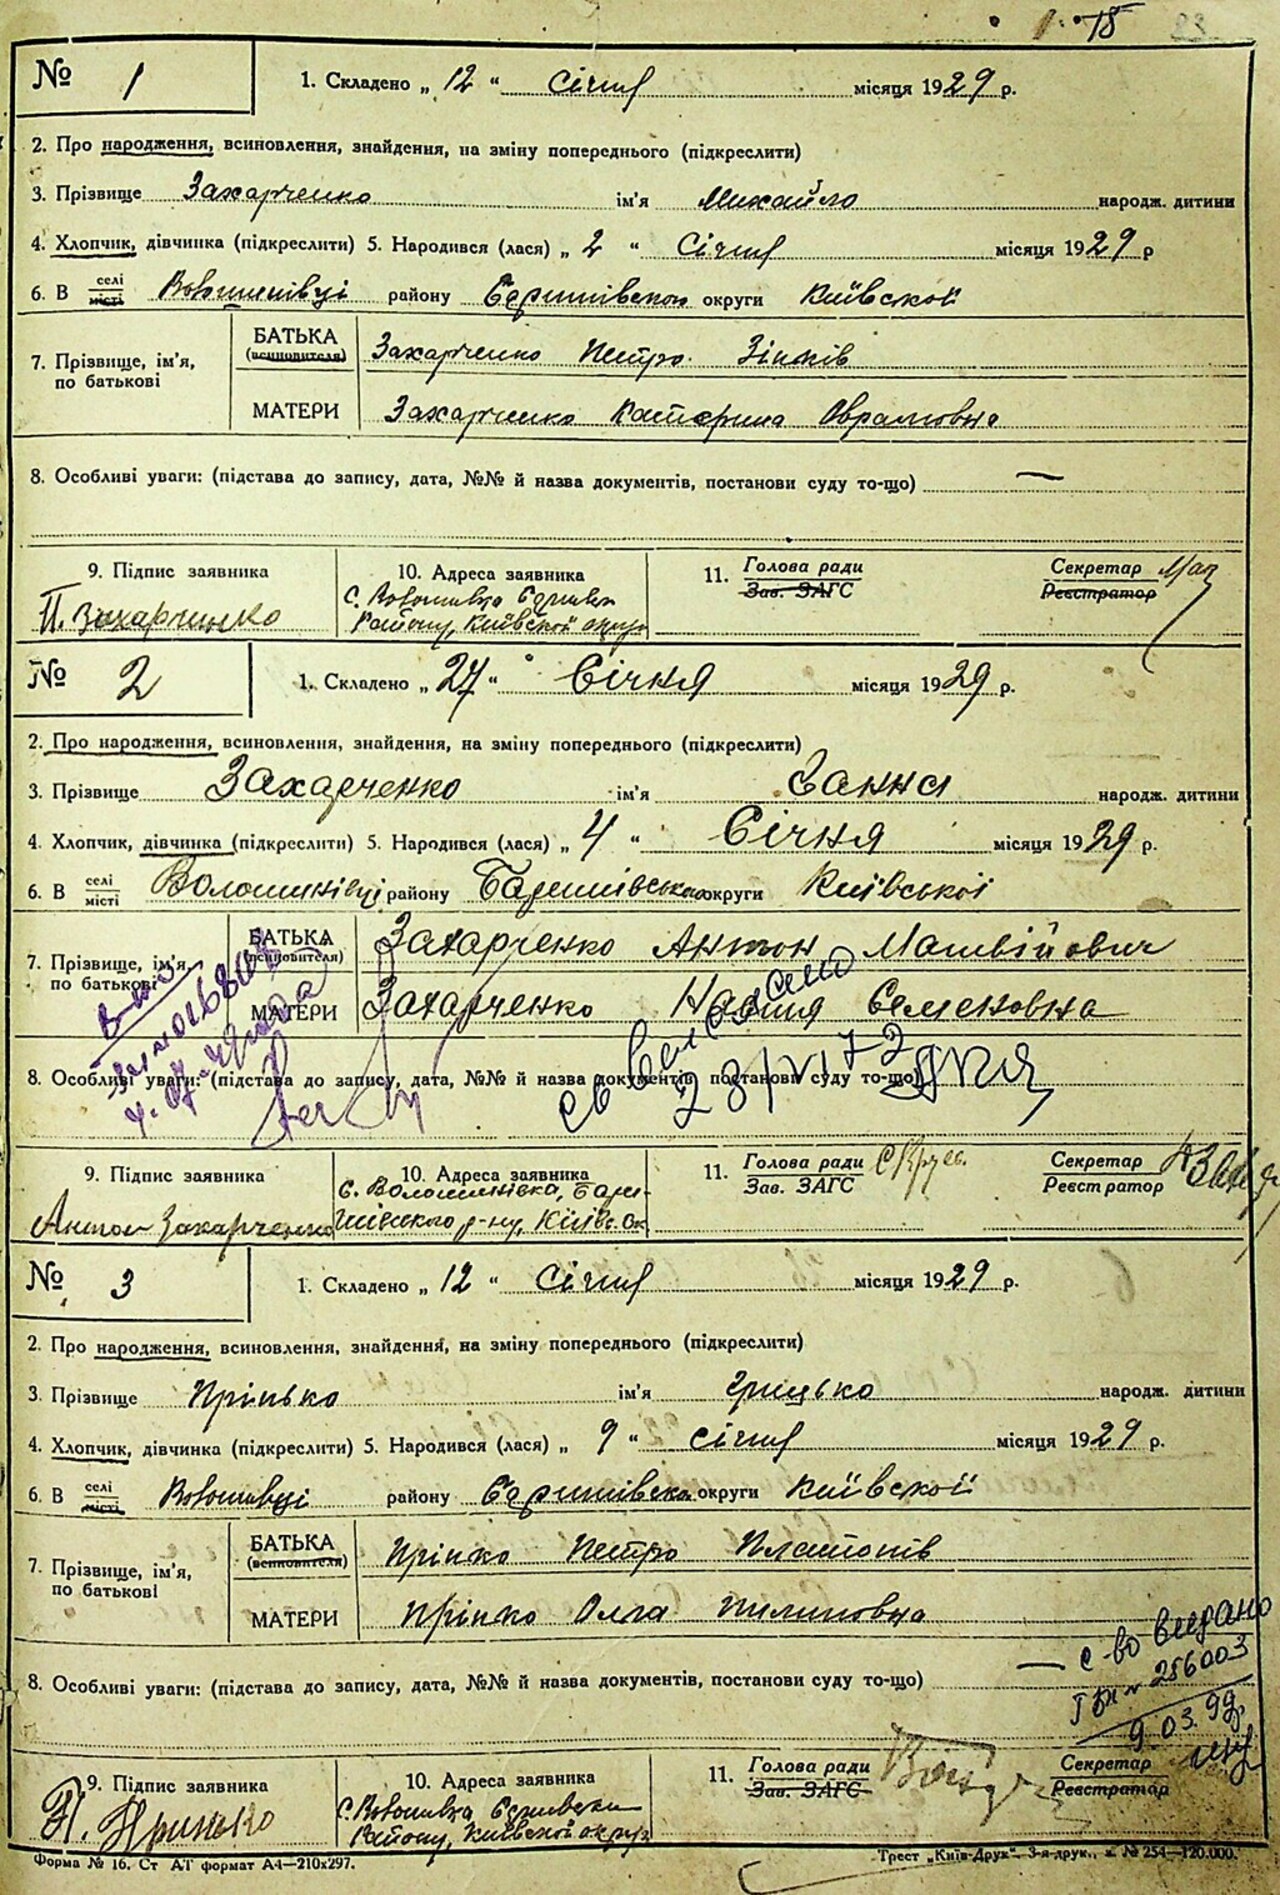 15 23
№ 1 1. Складено „ 12 “ Січня місяця 1929 р.
2. Про народження, всиновлення, знайдення, на зміну попереднього (підкреслити)
3. Прізвище Захарченко ім'я Михайло народж. дитини
4. Хлопчик, дівчинка (підкреслити) 5. Народився (лася) „ 2 “ Січня місяця 1929 р
6. В селі місті району округи Київской
7. Прізвище, ім'я, по батькові БАТЬКА (всиновителя) Захарченко Петро Зінків
МАТЕРИ Захарченко Катерина Оврамовна
8. Особливі уваги: (підстава до запису, дата, №№ й назва документів, постанови суду то-що) —
9. Підпис заявника 10. Адреса заявника 11. Голова ради Зав. ЗАГС Секретар Реєстратор
П. Захарченко
Району, Київской округи
№ 2 1. Складено „ 27 “ Січня місяця 1929 р.
2. Про народження, всиновлення, знайдення, на зміну попереднього (підкреслити)
3. Прізвище Захарченко ім'я Ганна народж. дитини
4. Хлопчик, дівчинка (підкреслити) 5. Народився (лася) „ 4 “ Січня місяця 1929 р.
6. В селі місті Волошинівці району Баришівської округи Київської
7. Прізвище, ім'я, по батькові БАТЬКА (всиновителя) Захарченко Антон Матвійович
МАТЕРИ Захарченко Настя Семеновна
8. Особливі уваги: (підстава до запису, дата, №№ й назва документів, постанови суду то-що)
9. Підпис заявника 10. Адреса заявника 11. Голова ради Зав. ЗАГС Секретар Реєстратор
Антон Захарченко с. Волошинівка, Бари-
шівского р-ну, Київс. Ок
№ 3 1. Складено „ 12 “ Січня місяця 1929 р.
2. Про народження, всиновлення, знайдення, на зміну попереднього (підкреслити)
3. Прізвище ім'я Грицько народж. дитини
4. Хлопчик, дівчинка (підкреслити) 5. Народився (лася) „ 9 “ січня місяця 1929 р.
6. В селі місті району округи Київской
7. Прізвище, ім'я, по батькові БАТЬКА (всиновителя) Петро Платонів
МАТЕРИ Олга Пилиповна
с-во видано
№ 256003
9.03.99
8. Особливі уваги: (підстава до запису, дата, №№ й назва документів, постанови суду то-що) —
9. Підпис заявника 10. Адреса заявника 11. Голова ради Зав. ЗАГС Секретар Реєстратор
Району, Київской округи
Форма № 16. Ст АТ формат А4—210x297.
Трест „Київ-Друк“. 3-я друк., з. № 254—120.000.